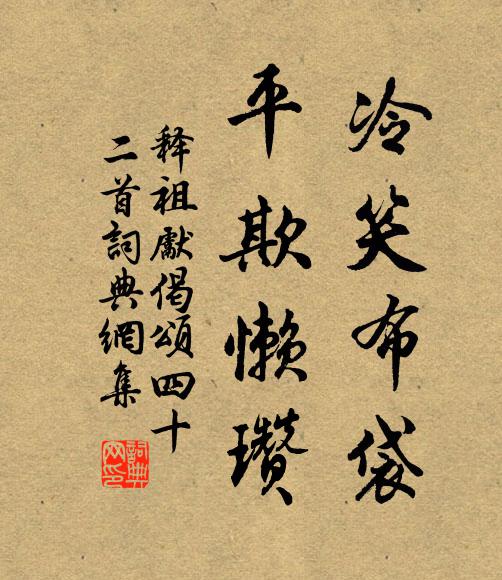 冷笑布袋
平欺懒瓒
释祖献偈颂四十
二首词典网集
词典网印